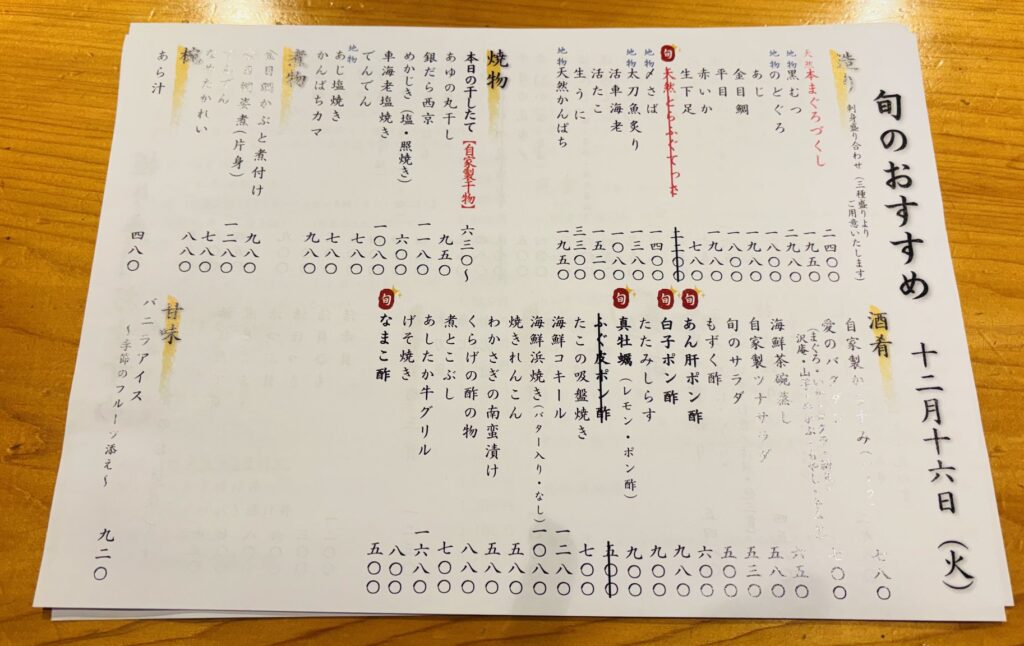 旬のおすすめ 十二月十六日(火)
造り 刺身盛り合わせ(三種盛りよりご用意いたします)
天然本まぐろづくし 二四〇〇
地物黒むつ 一九五〇
地物のどぐろ 二九八〇
あじ
金目鯛 一九八〇
平目 一八〇〇
赤いか 一九八〇
生下足 七八〇
旬 天然とらふぐてっさ
地物〆さば 一四〇〇
地物太刀魚炙り 一三八〇
活車海老 一〇八〇
活たこ 一五二〇
生うに 三三〇〇
地物天然かんぱち 一九五〇
焼物
本日の干したて【自家製干物】 六三〇〜
あゆの丸干し 九五〇
銀だら西京 一一八〇
めかじき(塩・照焼き) 六〇〇
車海老塩焼き 一〇八〇
でんでん 七八〇
地物あじ塩焼き 七八〇
かんぱちカマ 九八〇
煮物
金目鯛かぶと煮付け 九八〇
姿煮(片身) 一二八〇
七八〇
なめたかれい 八八〇
椀
あら汁 四八〇
酒肴
自家製か み 七八〇
愛のバクダン
(まぐろ・いか
沢庵・山芋 六五〇
海鮮茶碗蒸し 五八〇
自家製ツナサラダ 五三〇
旬のサラダ 五〇〇
もずく酢 六〇〇
旬 あん肝ポン酢 九八〇
旬 白子ポン酢 九〇〇
たたみしらす 九〇〇
旬 真牡蠣(レモン・ポン酢)
ふぐ皮ポン酢 五〇〇
たこの吸盤焼き 七〇〇
海鮮コキール 一二八〇
海鮮浜焼き(バター入り・なし) 一〇八〇
焼きれんこん 五八〇
わかさぎの南蛮漬け 五八〇
くらげの酢の物 八八〇
煮とこぶし 七〇〇
あしたか牛グリル 一六八〇
げそ焼き 八〇〇
旬 なまこ酢 五〇〇
甘味
バニラアイス
〜季節のフルーツ添え〜 九二〇